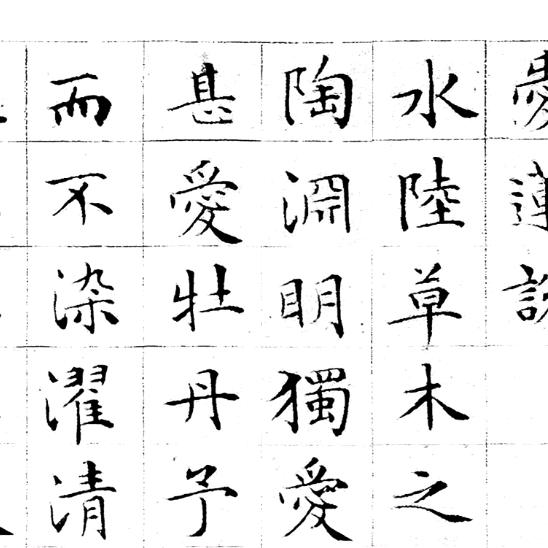 愛蓮說
水陸草木之
陶淵明獨愛
甚愛牡丹予
而不染濯清